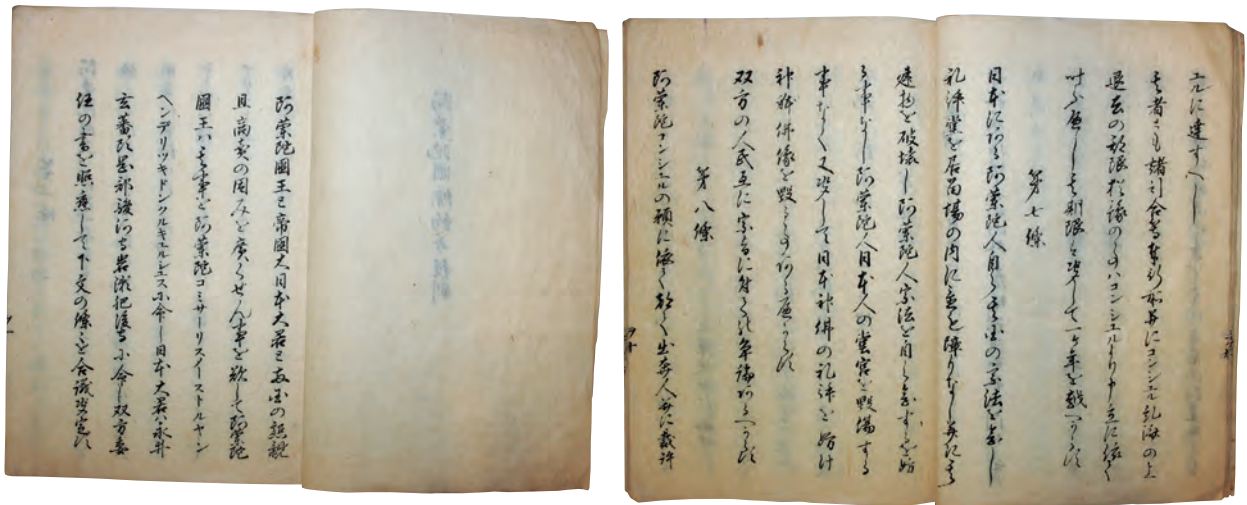 阿蘭陀國王と帝國大日本大君と両国の懇親
且商売の因みを廣くせん事を欲して阿蘭陀
國王ハ其事を阿蘭陀コミサーリスイーストルヤン
ヘンデリツキドンクルキユルシユスに命し日本大君ハ永井
玄蕃頭岡部駿河守岩瀬肥後守に命し双方委
任の書を照應して下文の條々を合議決定す
エルに達すへし
其者とも諸引合等奉行所并にコンシユル糺済の上
退去の期限のものハコンシエルより申立に依て
叶ふへし其期限ハ決して一ケ年を越へからす
第七條
日本に在る阿蘭陀人自ら其国の宗法を念し
礼拝堂を居留場の内に置も障りなし并に其
建物を破壊し阿蘭陀人宗法を自ら念するを妨
る事なし阿蘭陀人日本人の堂宮を毀傷する
事なく又決して日本神佛の礼拝を妨け
神躰佛像を毀る事あるへからす
双方の人民互に宗旨に付ての争論あるへからす
第八條
阿蘭陀コンシエルの願に依て都て出奔人并に裁許